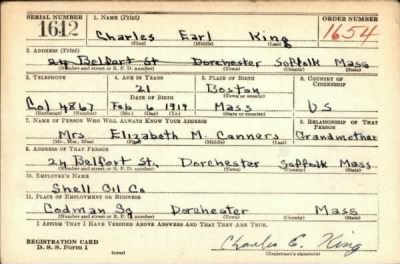 SERIAL NUMBER 1. NAME (Print) ORDER NUMBER
1612 Charles Earl King 1654
(First) (Middle) (Last)
2. ADDRESS (Print)
24 Belfort St Dorchester Suffolk Mass
(Number and street or R. F. D. number) (Town) (County) (State)
3. TELEPHONE 4. AGE IN YEARS 5. PLACE OF BIRTH 6. COUNTRY OF CITIZENSHIP
21 Boston
DATE OF BIRTH (Town or county)
Col 4867 Feb 1919 Mass US
(Exchange) (Number) (Mo.) (Day) (Yr.) (State or country)
7. NAME OF PERSON WHO WILL ALWAYS KNOW YOUR ADDRESS 8. RELATIONSHIP OF THAT PERSON
Mrs Elizabeth M. Canners Grandmother
(Mr., Mrs., Miss) (First) (Middle) (Last)
9. ADDRESS OF THAT PERSON
24 Belfort St. Dorchester Suffolk Mass
(Number and street or R. F. D. number) (Town) (County) (State)
10. EMPLOYER'S NAME
Shell Oil Co
11. PLACE OF EMPLOYMENT OR BUSINESS
Codman Sq Dorchester Mass
(Number and street or R. F. D. number) (Town) (County) (State)
I AFFIRM THAT I HAVE VERIFIED ABOVE ANSWERS AND THAT THEY ARE TRUE.
REGISTRATION CARD
D. S. S. Form 1 (over) Charles E. King
(Registrant's signature)